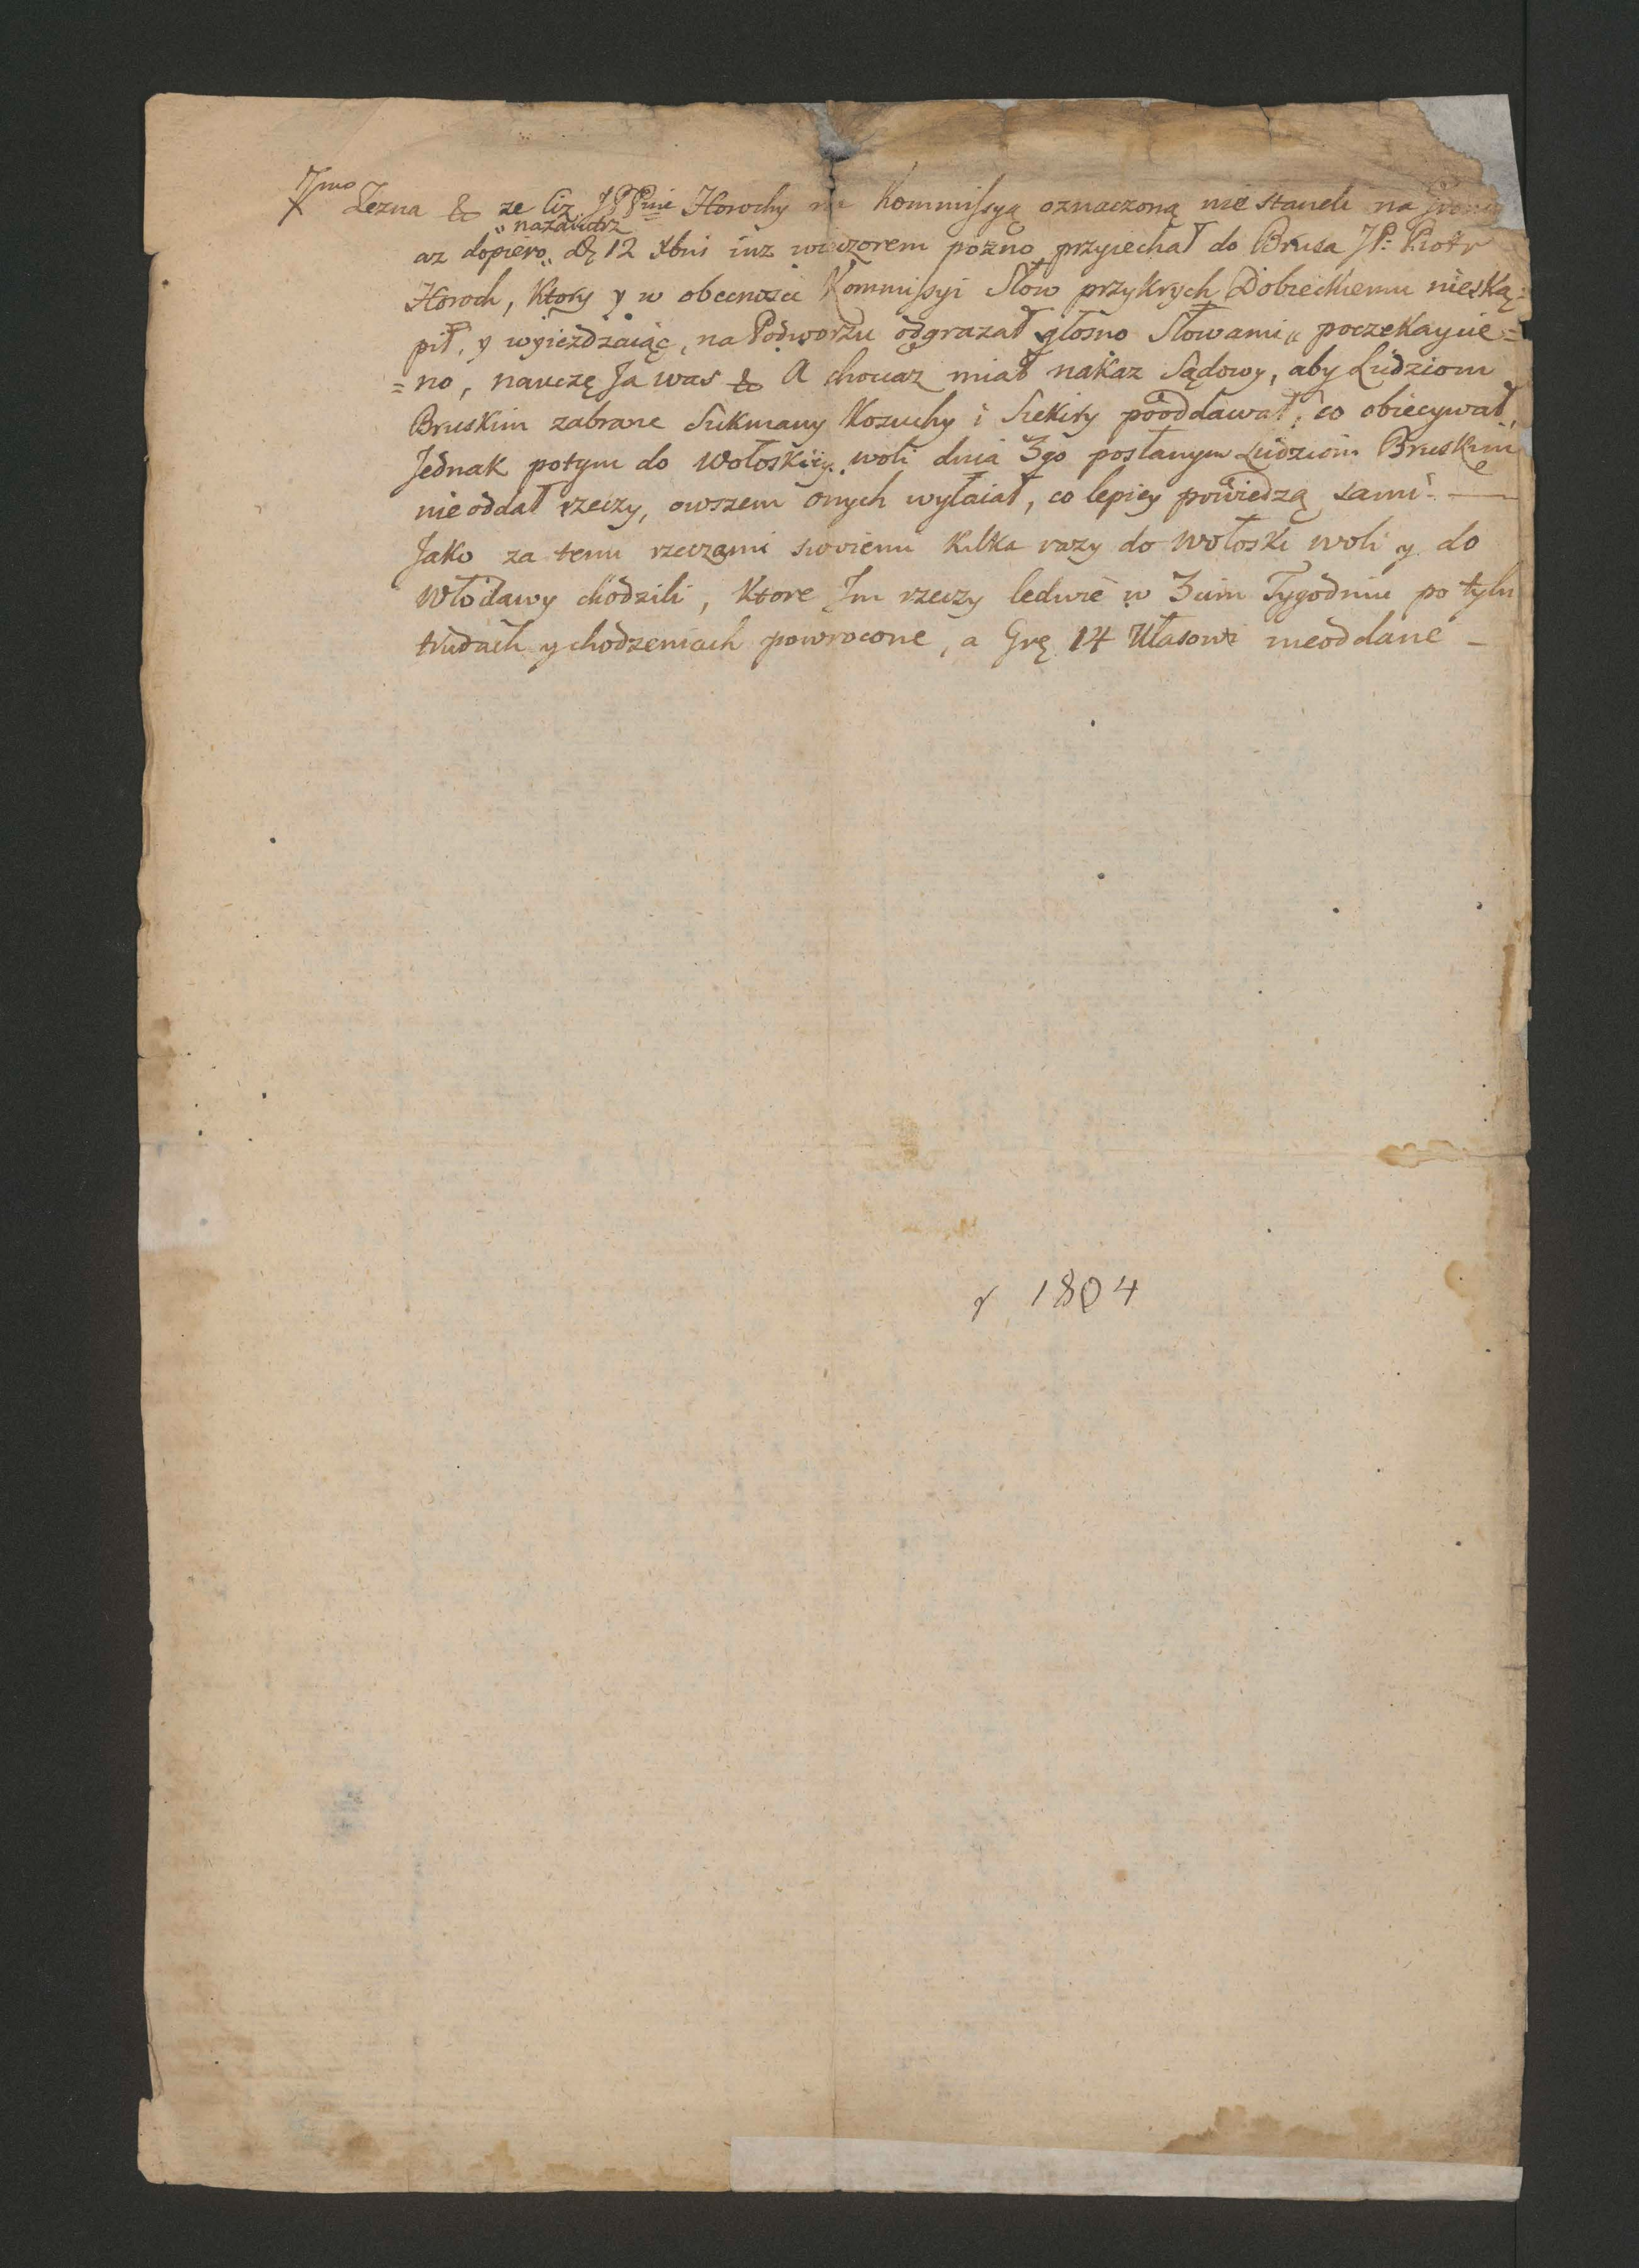 7mo Zezna & ze Ciż JPPnie Horochy na Kommissyą oznaczoną nie staneli na
nazaiutrz
az dopiero d. 12 Xbris iuz wieczorem pozno przyiechał do Brusa JP: Piotr
Horoch, Ktory y w obecnosci Kommissyi Słow przykrych Dobieckiemu nieską-
pił, y wyieżdzaiąc, na Podworzu odgrazał głosno Słowami „ poczekaycie=
=no, nauczę Ja was & A chociaz miał nakaz Sądowy, aby Ludziom
Bruskim zabrane Sukmany Kozuchy i Siekiry pooddawał, co obiecywał,
Jednak potym do Wołoskiey woli dnia 3go posłanym Ludziom Bruskim
nie oddał rzeczy, owszem onych wyłaiał, co lepiey powiedzą sami. —
Jako za temi rzeczami swoiemi Kilka razy do Wołoski woli y do
Włodawy chodzili, Ktore Im rzeczy ledwie w 3cim Tygodniu po tylu
trudach y chodzeniach powrocone, a Grę 14 Ułasowi nieoddane —
r 1804